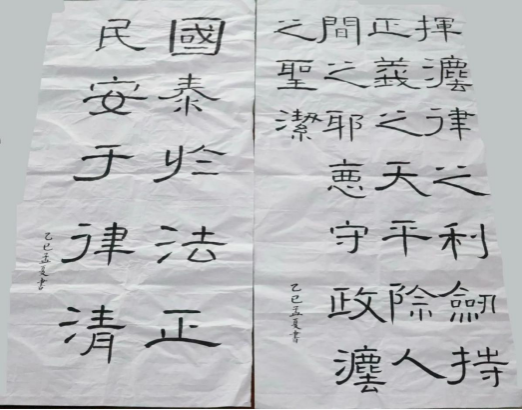 揮灋律之利劍持
正義之天平除人
間之耶惡守政灋
之聖潔
乙巳孟夏書
國泰於法正
民安于律清
乙巳孟夏書